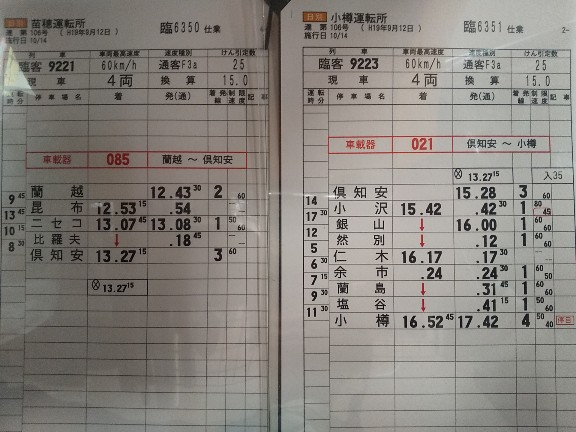 日別 苗穂運転所 臨6350 仕業
運 第 106号 ( H19年9月12日 )
施行日 10/14
列車 車両最高速度 速度種別 けん引定数
臨客 9221 60km/h 通客F3a 25
現車 4両 換算 15.0
運転時分 停車場名 着 発(通) 着発線 制限速度 記事
車載器 085 蘭越 ～ 倶知安
蘭越 12.43 30 2 60
9 45
昆布 12.53 15 .54
13 45
ニセコ 13.07 45 13.08 30 1 50 60
10 15
比羅夫 ↓ .18 45
8 30
倶知安 13.27 15 3 60
⊗ 13.27 15
日別 小樽運転所 臨6351 仕業 2-
運 第 106号 ( H19年9月12日 )
施行日 10/14
列車 車両最高速度 速度種別 けん引定数
臨客 9223 60km/h 通客F3a 25
現車 4両 換算 15.0
運転時分 停車場名 着 発(通) 着発線 制限速度 記事
車載器 021 倶知安 ～ 小樽
⊗ 13.27 15 入35
倶知安 15.28 3 60
14
小沢 15.42 .42 30 1 80 45
17 30
銀山 ↓ 16.00 1 60
12
然別 ↓ .12 1 60
5
仁木 16.17 .17 30
6 30
余市 .24 .24 30 1 50
7 15
蘭島 ↓ .31 45 1 60
9 30
塩谷 ↓ .41 15 1 50
11 30
小樽 16.52 45 17.42 4 50 40